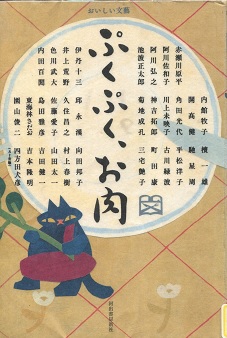 おいしい文藝
ぷくぷく、お肉
赤瀬川原平
阿川佐和子
阿川弘之
池波正太郎
伊丹十三
井上荒野
色川武大
内田百閒
内館牧子
角田光代
川上未映子
神吉拓郎
菊地成孔
邱永漢
久住昌之
佐藤愛子
島田雅彦
東海林さだお
園山俊二
檀一雄
馳星周
平松洋子
古川緑波
町田康
三宅艶子
向田邦子
村上春樹
山田太一
山田健一
吉本隆明
四方田犬彦
開高健
河出書房新社